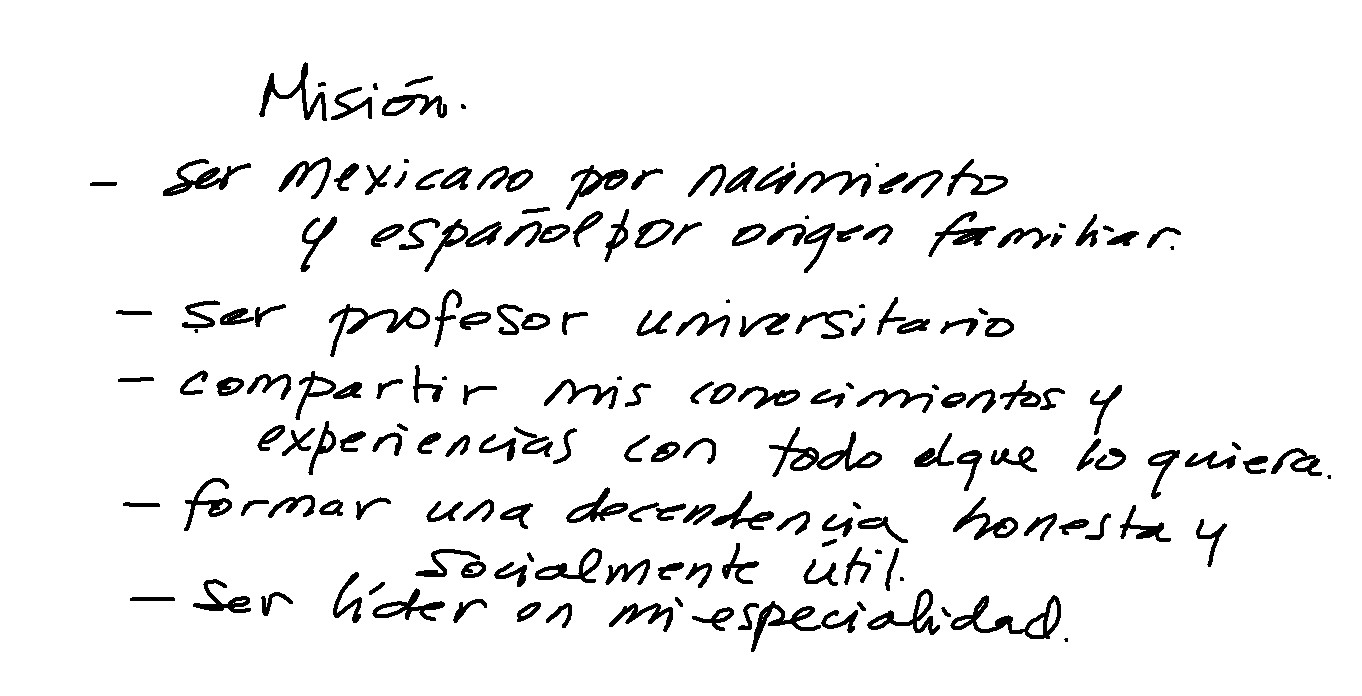 Misión.
- ser mexicano por nacimiento
y español por origen familiar.
- ser profesor universitario
- compartir mis conocimientos y
experiencias con todo el que lo quiera.
- formar una decendencia honesta y
socialmente útil.
- ser líder en mi especialidad.